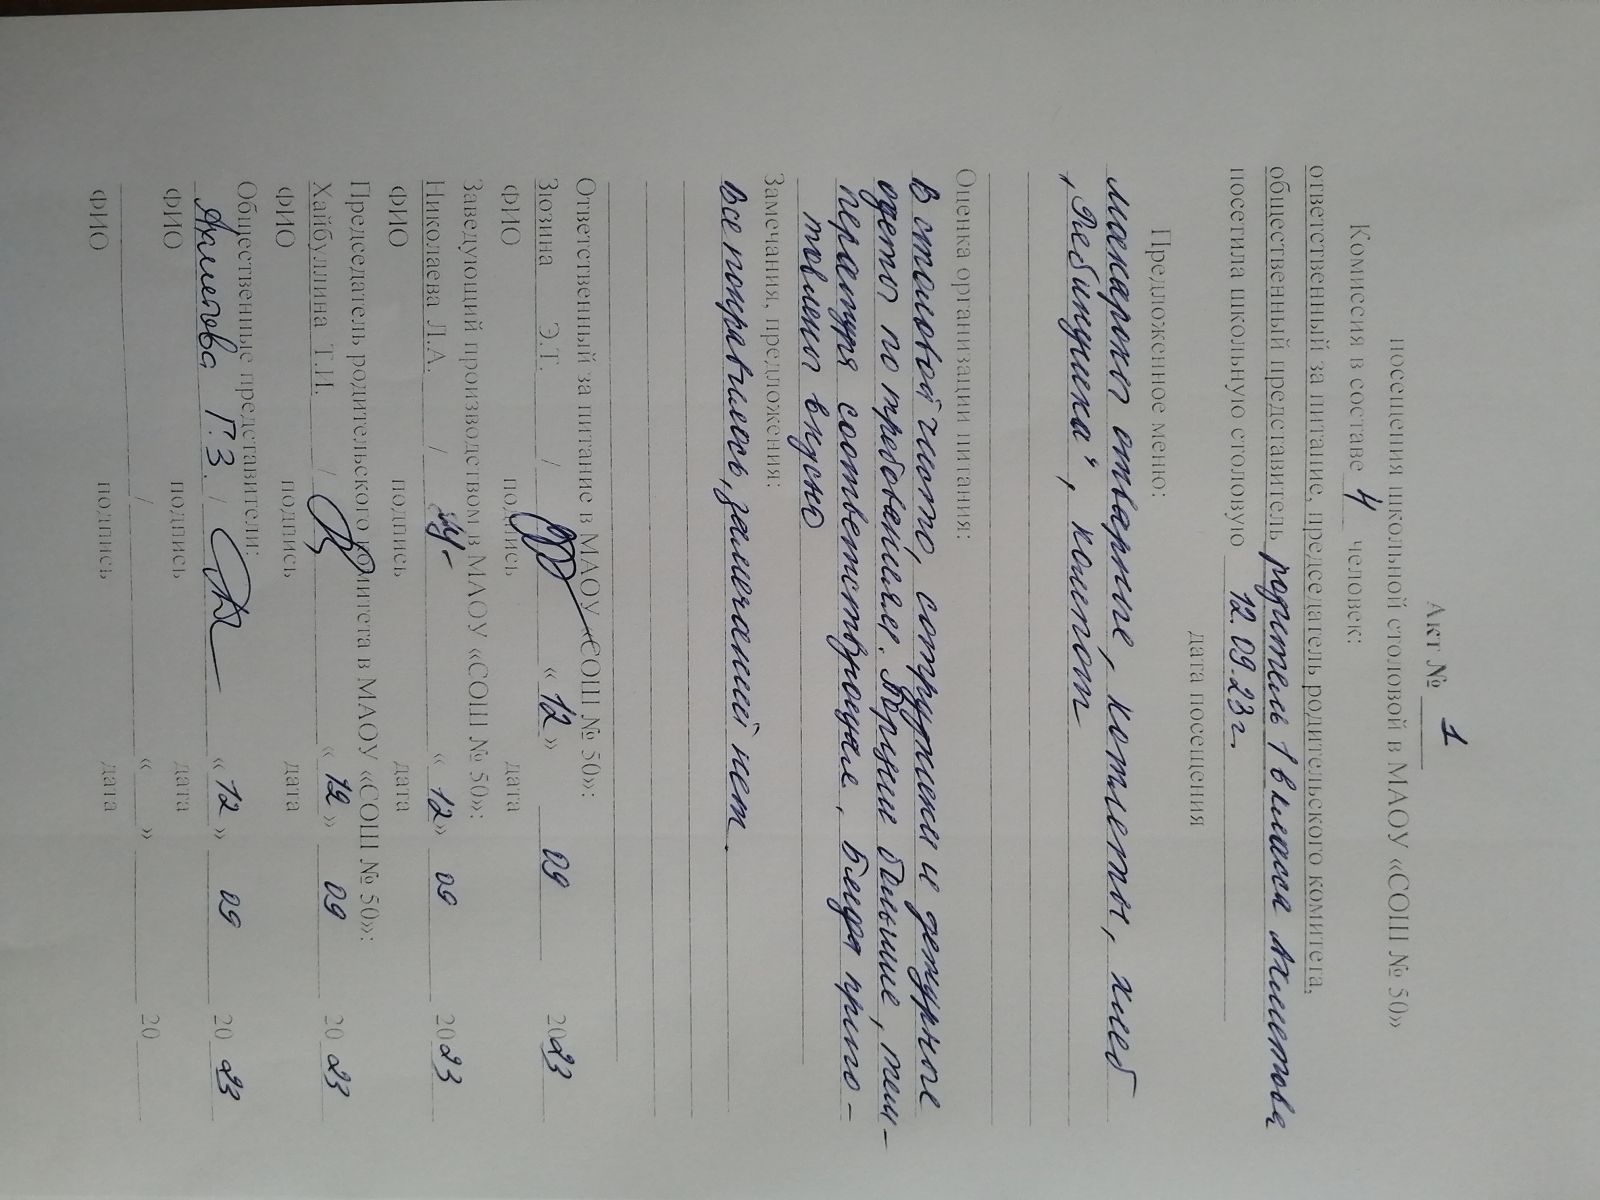 Акт № 1
посещения школьной столовой в МАОУ «СОШ № 50»
Комиссия в составе 4 человек:
ответственный за питание, председатель родительского комитета,
общественный представитель родитель 1 в класса Ахметова
посетила школьную столовую 12.09.23г.
дата посещения
Предложенное меню:
макароны отварные, котлеты, хлеб
„Рябинушка“, компот
Оценка организации питания:
В столовой чисто, сотрудники и дежурные
одеты по требованиям. Порции большие, тем-
пература соответствующая, блюда приго-
товлены вкусно
Замечания, предложения:
Все понравилось, замечаний нет.
Ответственный за питание в МАОУ «СОШ № 50»:
Зюзина Э.Т. / « 12 » 09 2023
ФИО подпись дата
Заведующий производством в МАОУ «СОШ № 50»:
Николаева Л.А. / « 12 » 09 2023
ФИО подпись дата
Председатель родительского комитета в МАОУ «СОШ № 50»:
Хайбуллина Т.И. / « 12 » 09 2023
ФИО подпись дата
Общественные представители:
Ахметова Г.З. / « 12 » 09 2023
ФИО подпись дата
/ « » 20
ФИО подпись дата